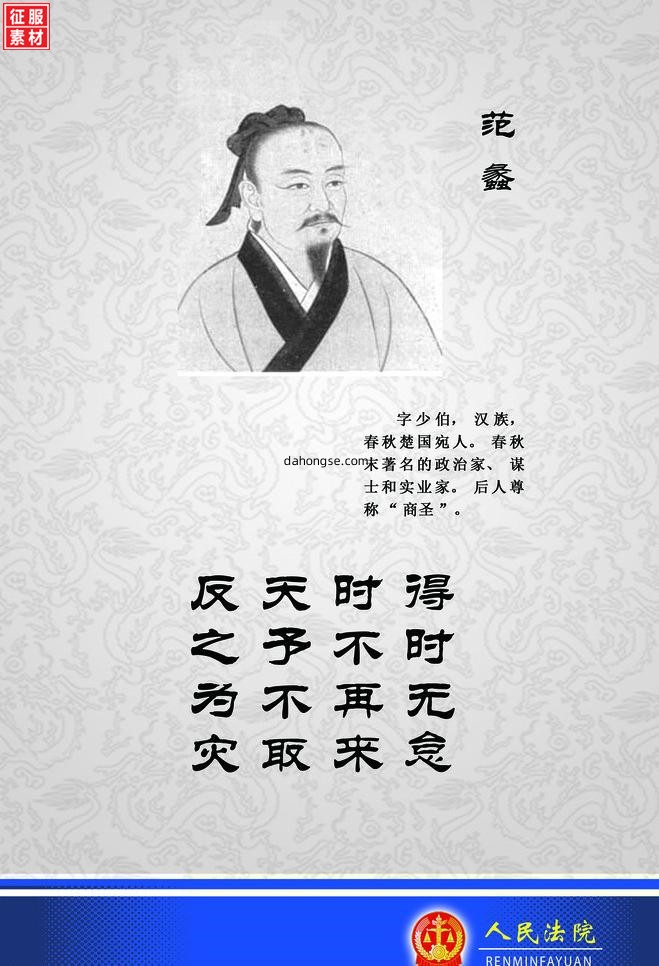 征服
素材
范蠡
字少伯，汉族，
春秋楚国宛人。春秋
末著名的政治家、谋
士和实业家。后人尊
称“商圣”。
dahongse.com
得时无怠
时不再来
天予不取
反之为灾
人民法院
RENMINFAYUAN